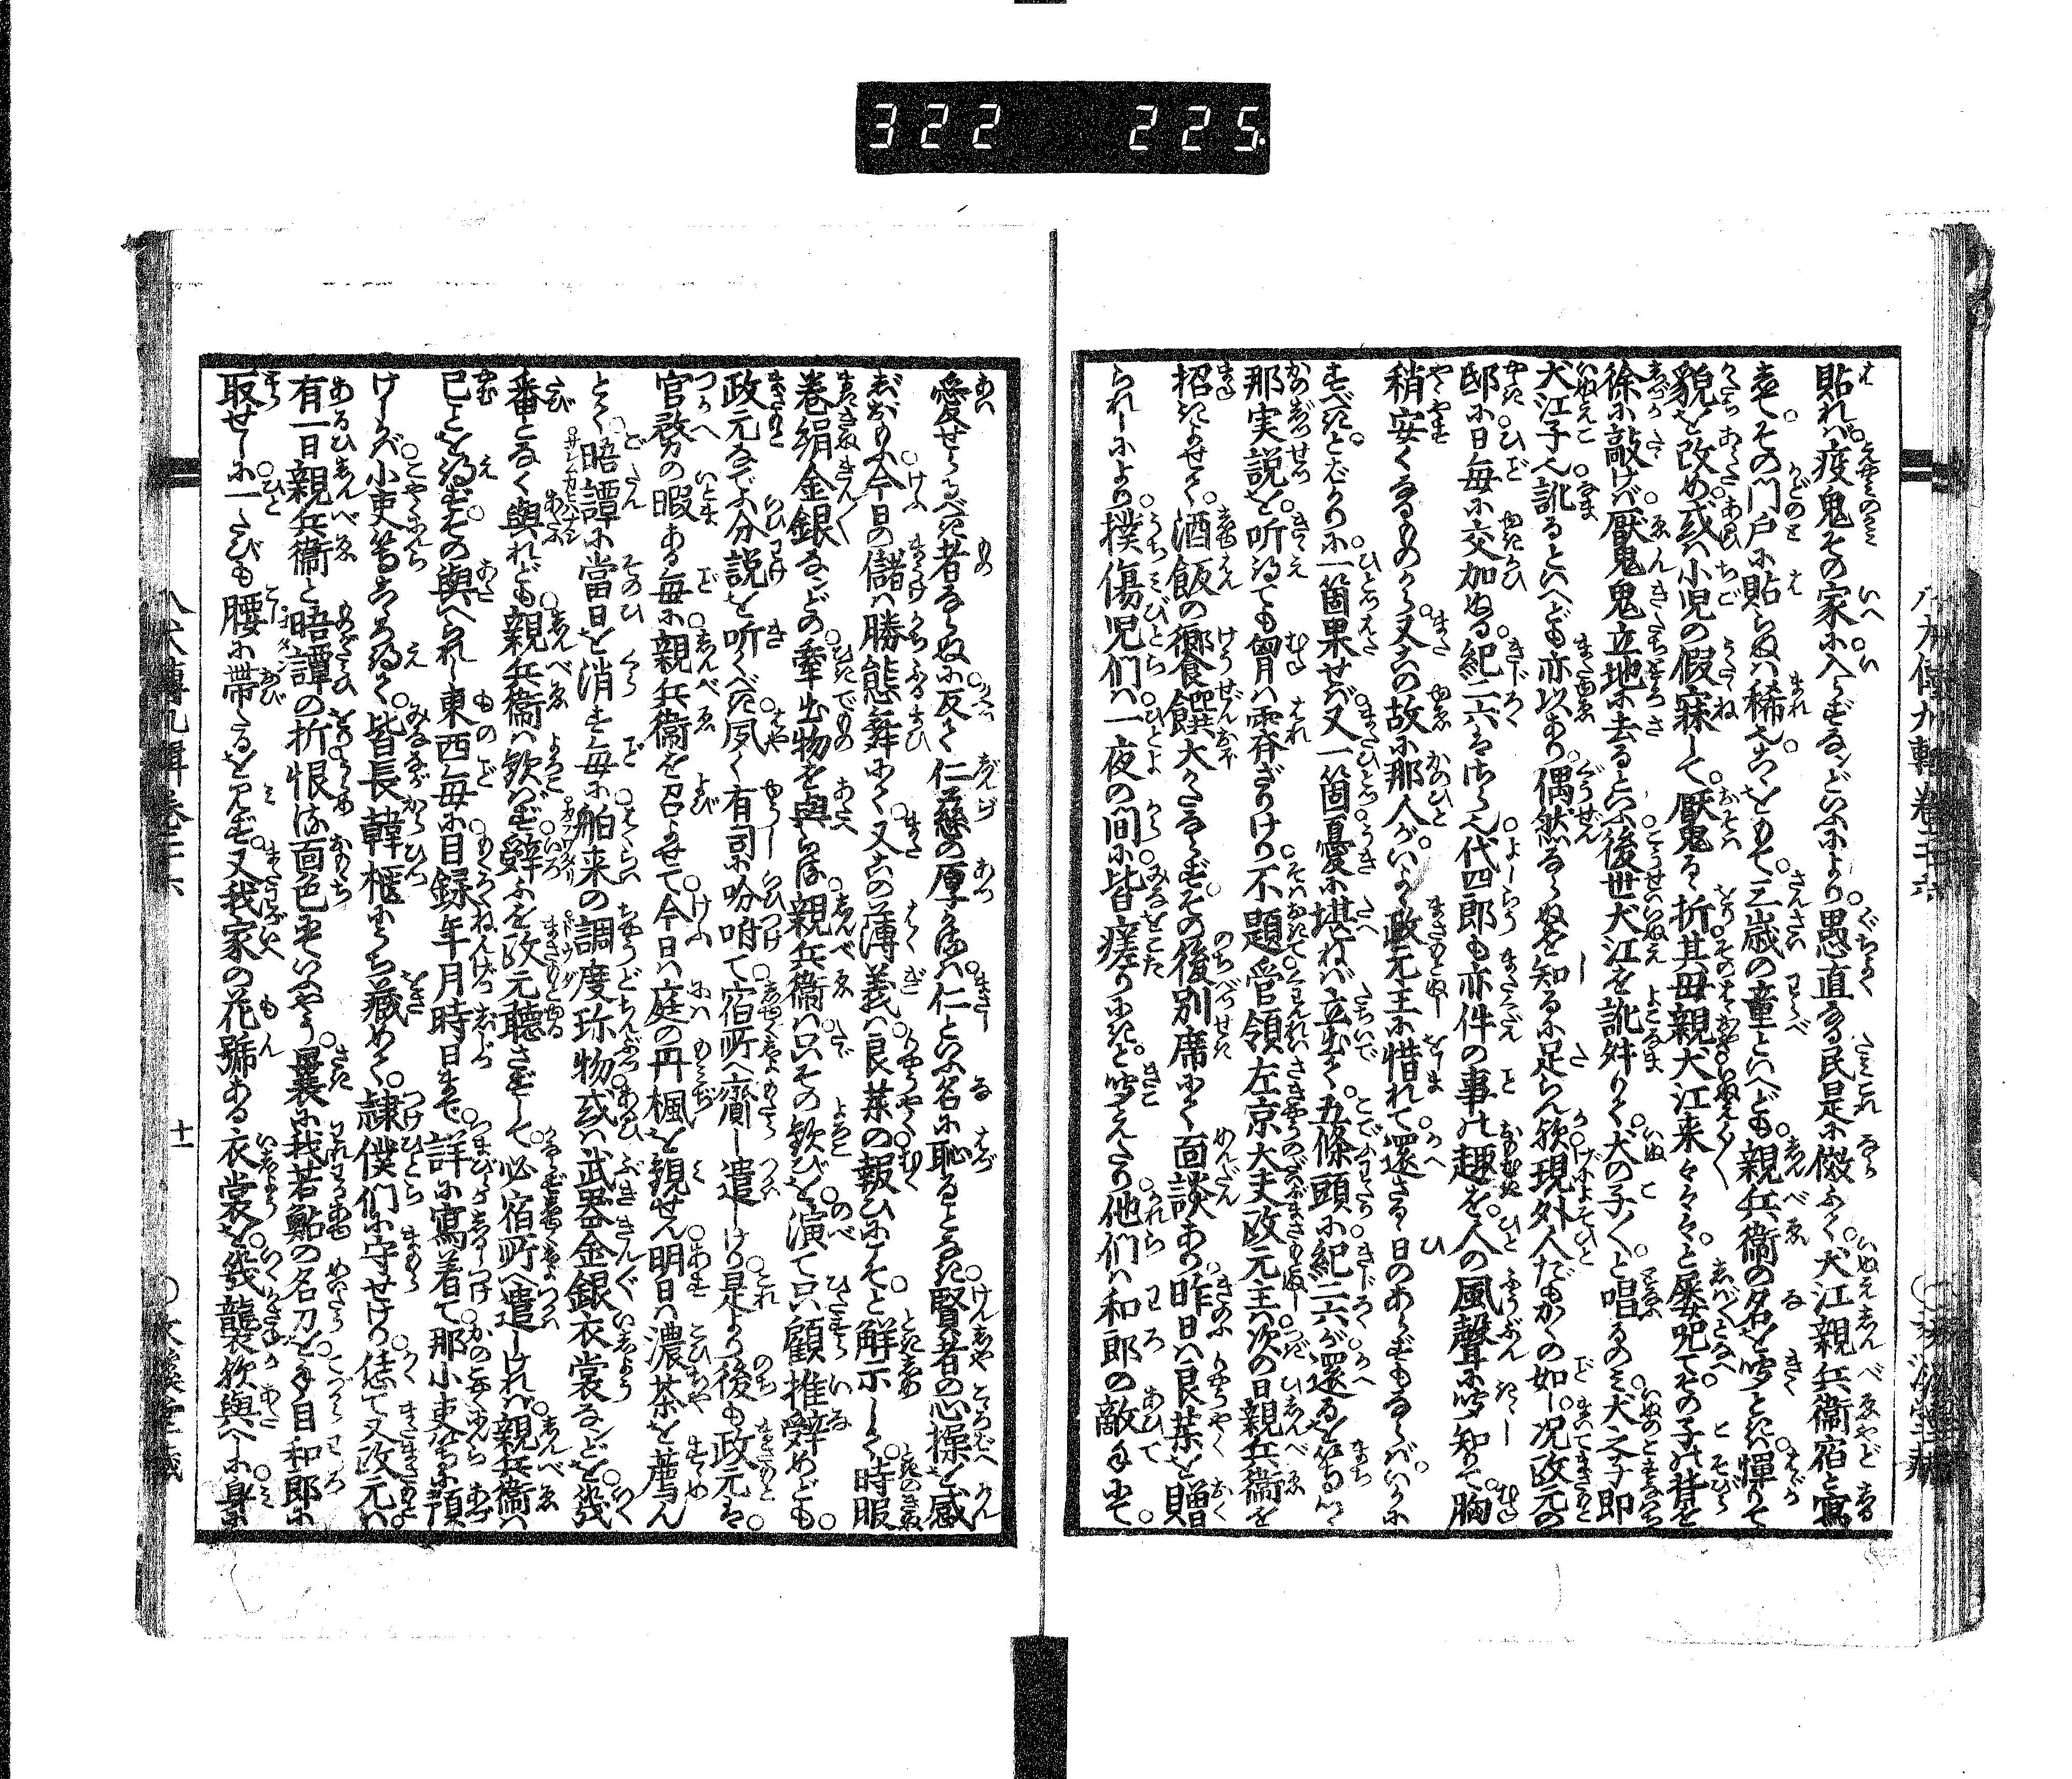 322 225
貼れバ疫鬼その家に入らずなンどいふにより愚直なる民是に傚ふて犬江親兵衞宿と寫
をその門戸に貼らぬハ稀也こゝをもて三歳の童といへども親兵衞の名を聞ときハ憚りて
貌を改め或ハ小児の假寐して魘るゝ折其母親犬江来々々々と屡呪てその子の背を
徐に敲けバ厭鬼鬼立地に去るといふ後世犬江を訛舛りて犬の子〳〵と唱るのミ犬之子即
犬江子の訛るといへども亦以あり偶然ならぬを知るに足らん歟現外人だもかくの如し況政元の
邸に日毎に交加ぬる紀二六はさら也代四郎も亦件の事の趣を人の風聲に聞知りて胸
稍安くなるものから又この故に那人がいよゝ政元主に惜れて還さるゝ日のあらずもならバいかに
すべきとばかりに一箇果せバ又一箇憂に堪ねバ立出て五條頭に紀二六が還るを待つゝ
那実説を听得ても胷ハ霽ざりけり不題管領左京大夫政元主ハ次の日親兵衞を
招きよせて酒飯の饗饌大かたならずその後別席にて面談あり昨日ハ良薬を贈
られしにより撲傷児們ハ一夜の間に皆瘥りにきと聞えたり他們ハ和郎の敵手にて
愛せらるべき者ならぬに反て仁慈の厚かるハ仁といふ名に恥ることなき賢者の心操を感
ずるの〻今日の儲ハ勝態舞にて又この薄義ハ良薬の報ひにこそと解示して時服
巻絹金銀なンどの牽出物を與らる親兵衞ハ只その歓びを演て只顧推辞めども
政元なでふ分説を听くべき夙く有司に吩咐て宿所へ齎し遣しけり是より後も政元は
官務の暇ある毎に親兵衞を召よせて今日ハ庭の丹楓を観せん明日ハ濃茶を薦ん
とて晤譚に當日を消す毎に舶来の調度珎物或ハ武器金銀衣裳なンどを幾
番となく與れども親兵衞ハ歓バず辞ふを政元聴さずして必宿所へ遣しけれバ親兵衞ハ
已ことを得ずその與へられし東西毎に目録年月時日まで詳に寫着て那小吏們に預
けしかバ小吏等こゝろ得て皆長韓櫃にうち藏めて隷僕們に守せけり恁て又政元ハ
有一日親兵衞と晤譚の折恨る面色していふやう曩に我若鮎の名刀を手自和郎に
取せしに一トたびも腰に帯たるを見ず又我家の花號ある衣裳を幾襲歟與へしに身に
八犬傳九輯巻三十六
十一